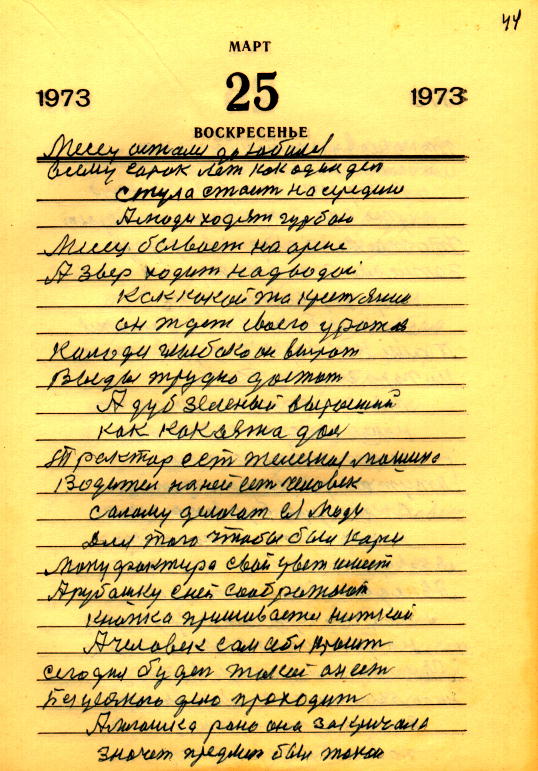 44
МАРТ
1973 25 1973
ВОСКРЕСЕНЬЕ
Месец
всему сорок лет как один ден
стула стоит на середине
А люди ходят гурбою
Месец бывает на арене
А звер ходит над водой
Как какой та крестянин
он ждет своего урожая
Колоди глыбако он вырот
Воды трудно достат
А дуб зеленый выросший
как какаята доля
Трактор ест железная машина
Водител на ней ест человек
солому делоют ей люди
Для того чтобы были кари
Мануфактура свой цвет имеет
А рубашку с ней соображают
кнопка пришивается ниткой
А человек сам себя
сегодня будет такой ансет
Без всякого дело проходит
рано она закричала
значет предмет был такой